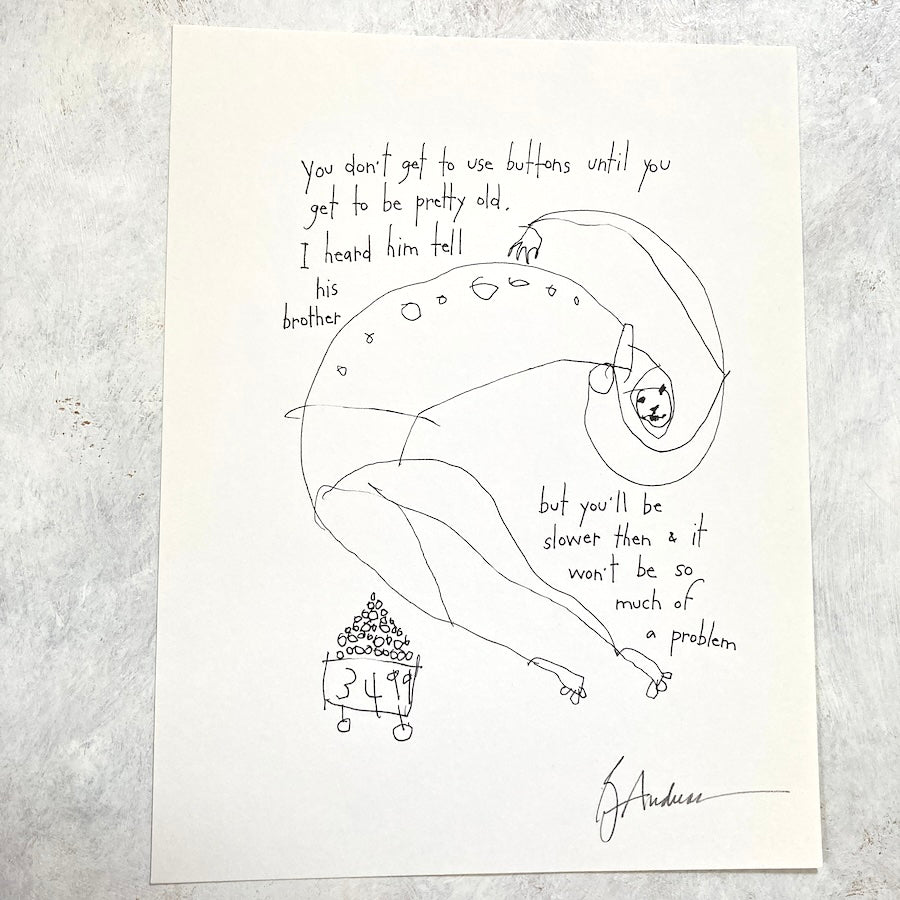 You don't get to use buttons until you
get to be pretty old.
I heard him tell
his
brother
but you'll be
slower then & it
won't be so
much of
a problem
34 99
Andreas